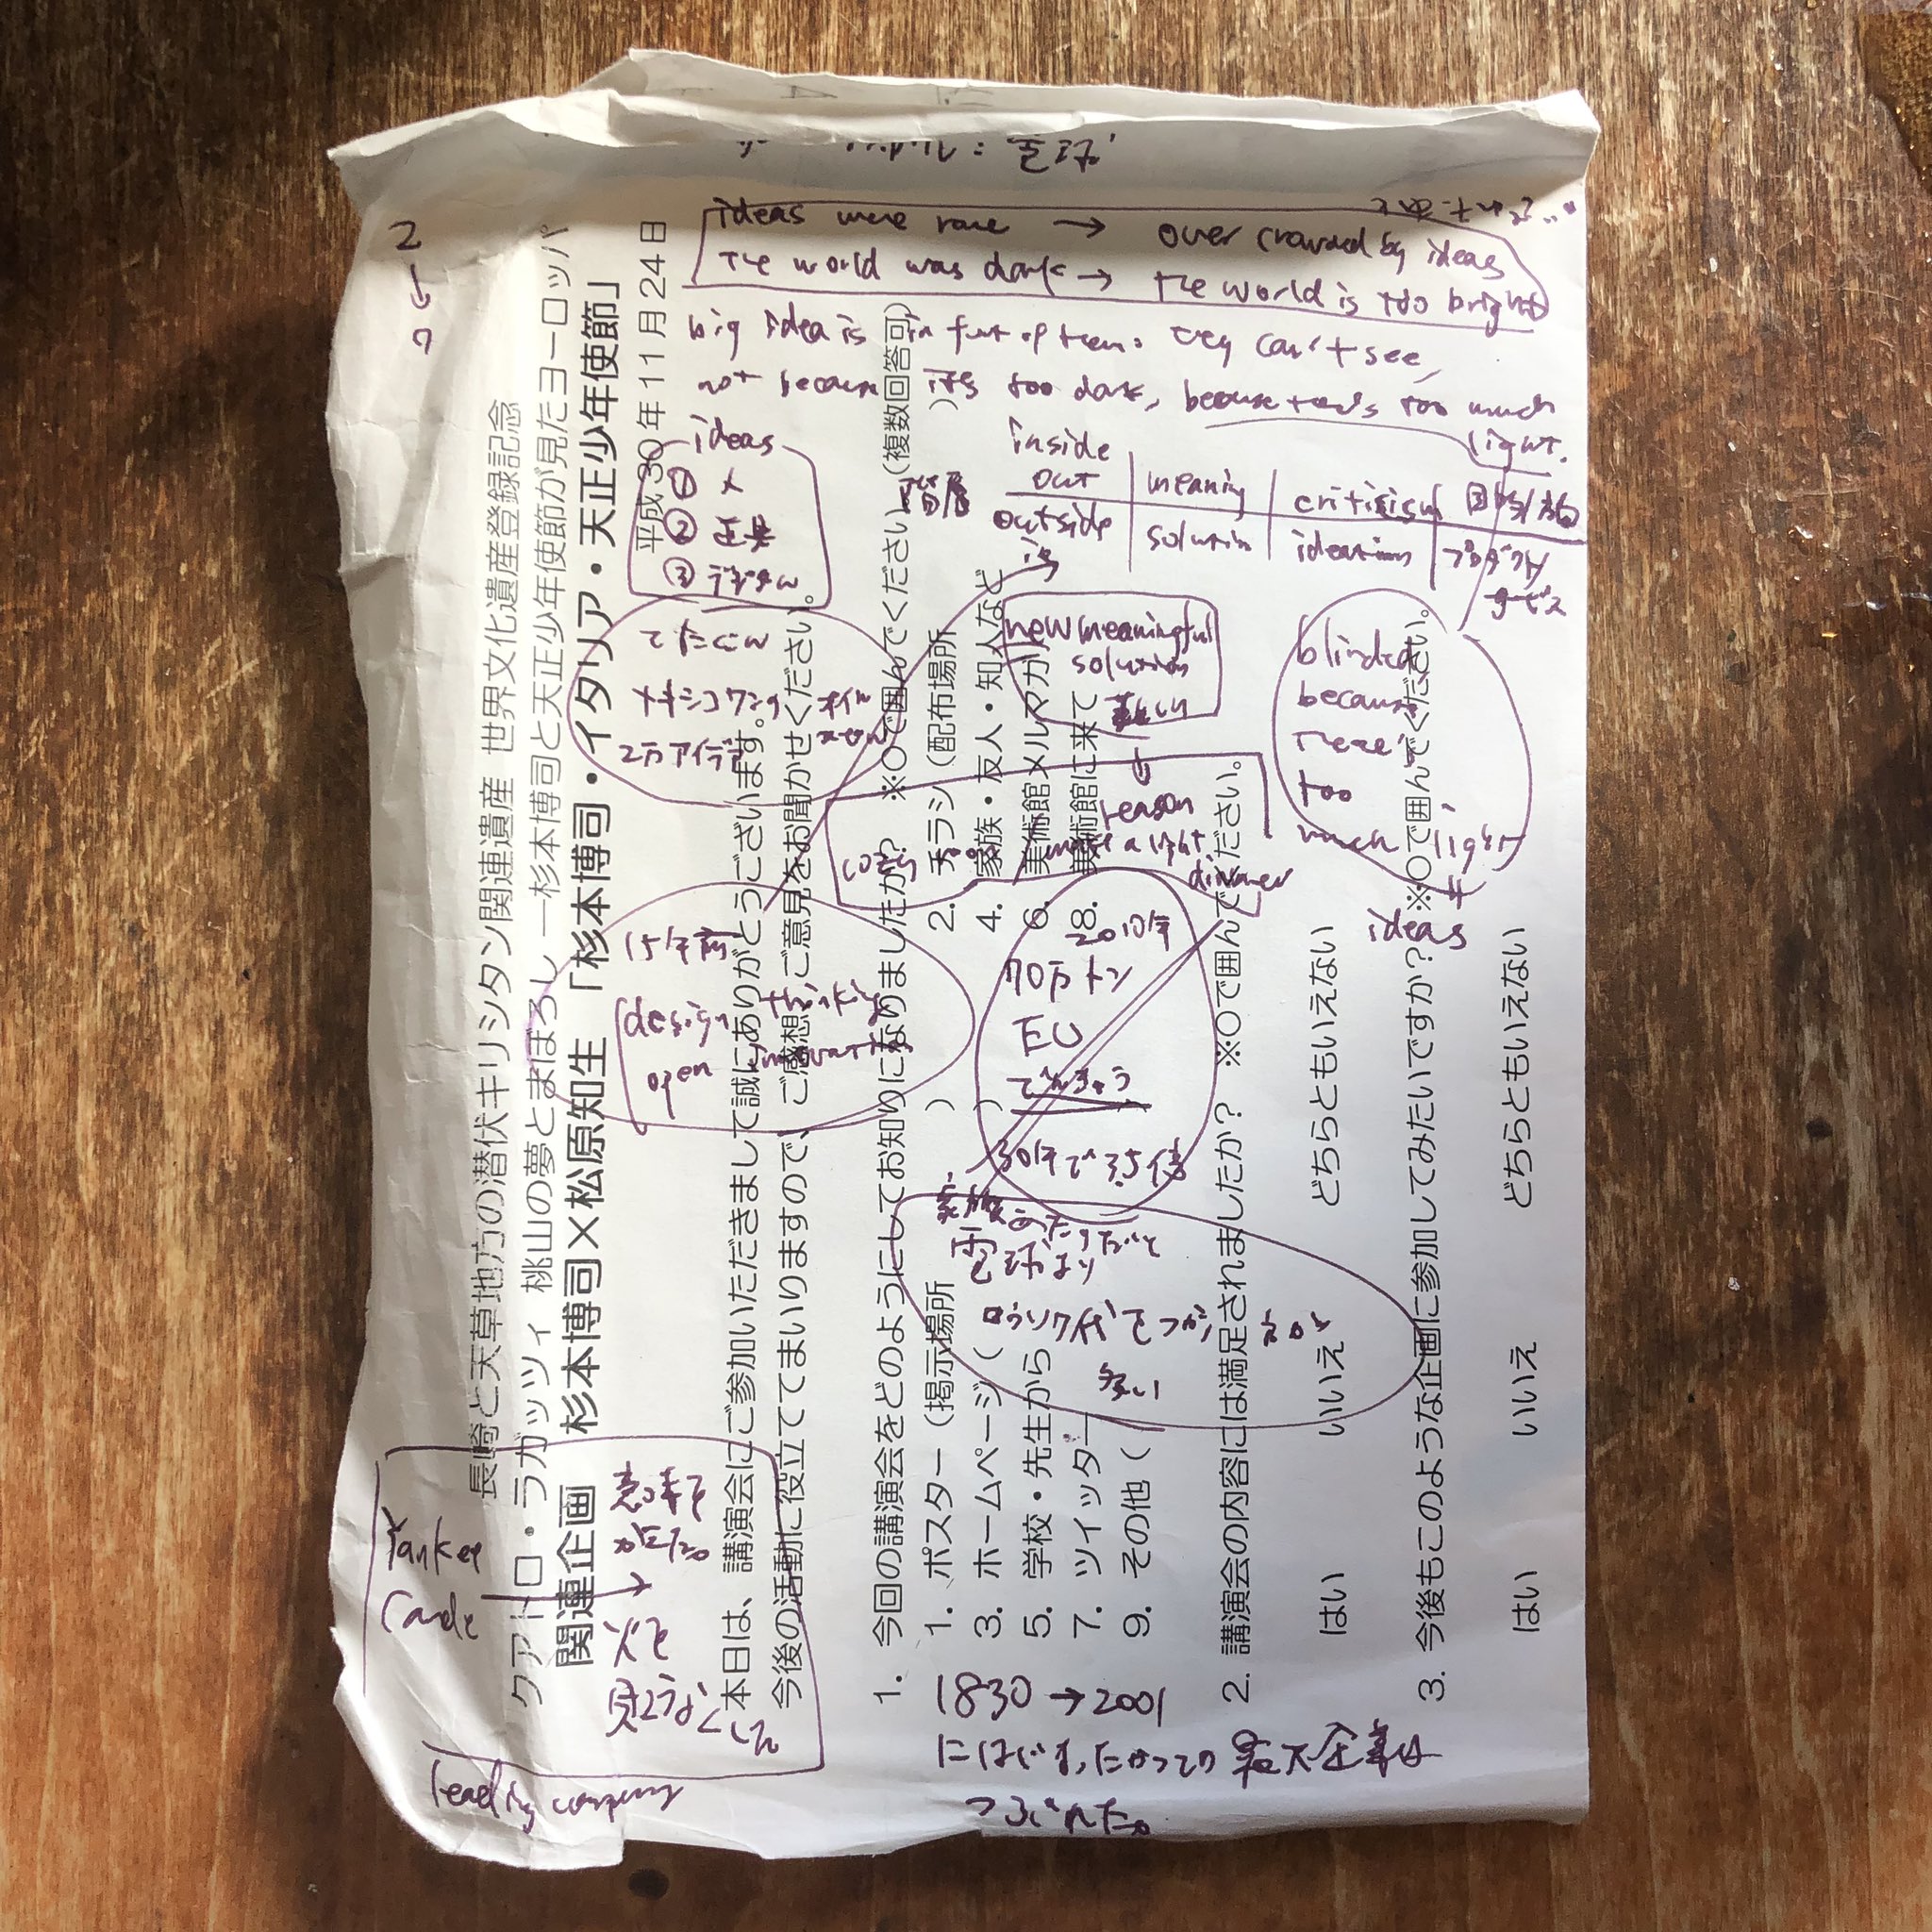 長崎と天草地方の潜伏キリシタン関連遺産 世界文化遺産登録記念
クアトロ・ラガッツィ 桃山の夢とまぼろし ―杉本博司と天正少年使節が見たヨーロッパ
関連企画 杉本博司×松原知生 「杉本博司・イタリア・天正少年使節」
平成30年11月24日
本日は、講演会にご参加いただきまして誠にありがとうございます。
今後の活動に役立ててまいりますので、ご感想、ご意見をお聞かせください。
1. 今回の講演会をどのようにしてお知りになりましたか? ※〇で囲んでください(複数回答可)
1. ポスター(掲示場所 ) 2. チラシ(配布場所 )
3. ホームページ( ) 4. 家族・友人・知人など
5. 学校・先生から 6. 美術館メルマガ
7. ツイッター 8. 美術館に来て
9. その他(
2. 講演会の内容には満足されましたか? ※〇で囲んでください。
はい いいえ どちらともいえない
3. 今後もこのような企画に参加してみたいですか? ※〇で囲んでください。
はい いいえ どちらともいえない
ideas were rare → over crowded by ideas
The world was dark → the world is too bright
big idea is in front of them: they can't see,
not because it's too dark, because there's too much
light.
ideas
①
②
③ デジタル
inside
out
meaning
criticism
outside
in
solution
ideation
プロダクト
サービス
new meaningful
solution
reason
light
dinner
blinded
because
there's
too
much light
ideas
メキシコワング オイル
2万アイデア
15年前
design thinking
open innovation
2010年
70万トン
EU
でんきゅう
30年で3.5倍
家族
電球より
ロウソク
多い
Yankee
Candle
意味を
火を
leading company
1830 → 2001
にはじまったかつての最大企業は
つぶれた。